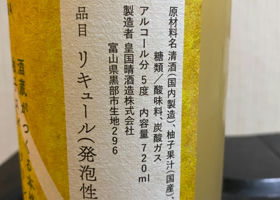 原材料名 清酒(国内製造)、柚子果汁(国産)、
糖類/酸味料、炭酸ガス
アルコール分 5度 内容量 720ml
製造者 皇国晴酒造株式会社
富山県黒部市生地296
品目 リキュール(発泡性
酒蔵がつくる本格